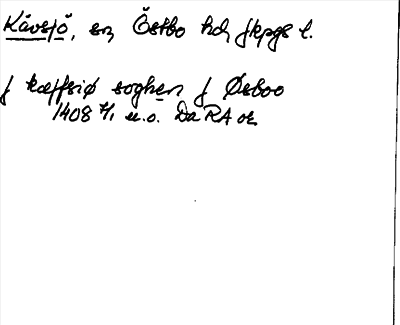 Kävsjö, sn, Östbo hd, Jkpgs l.
J kæffsiø soghen J Øsboo
1408 7/1 u.o. Da RA or